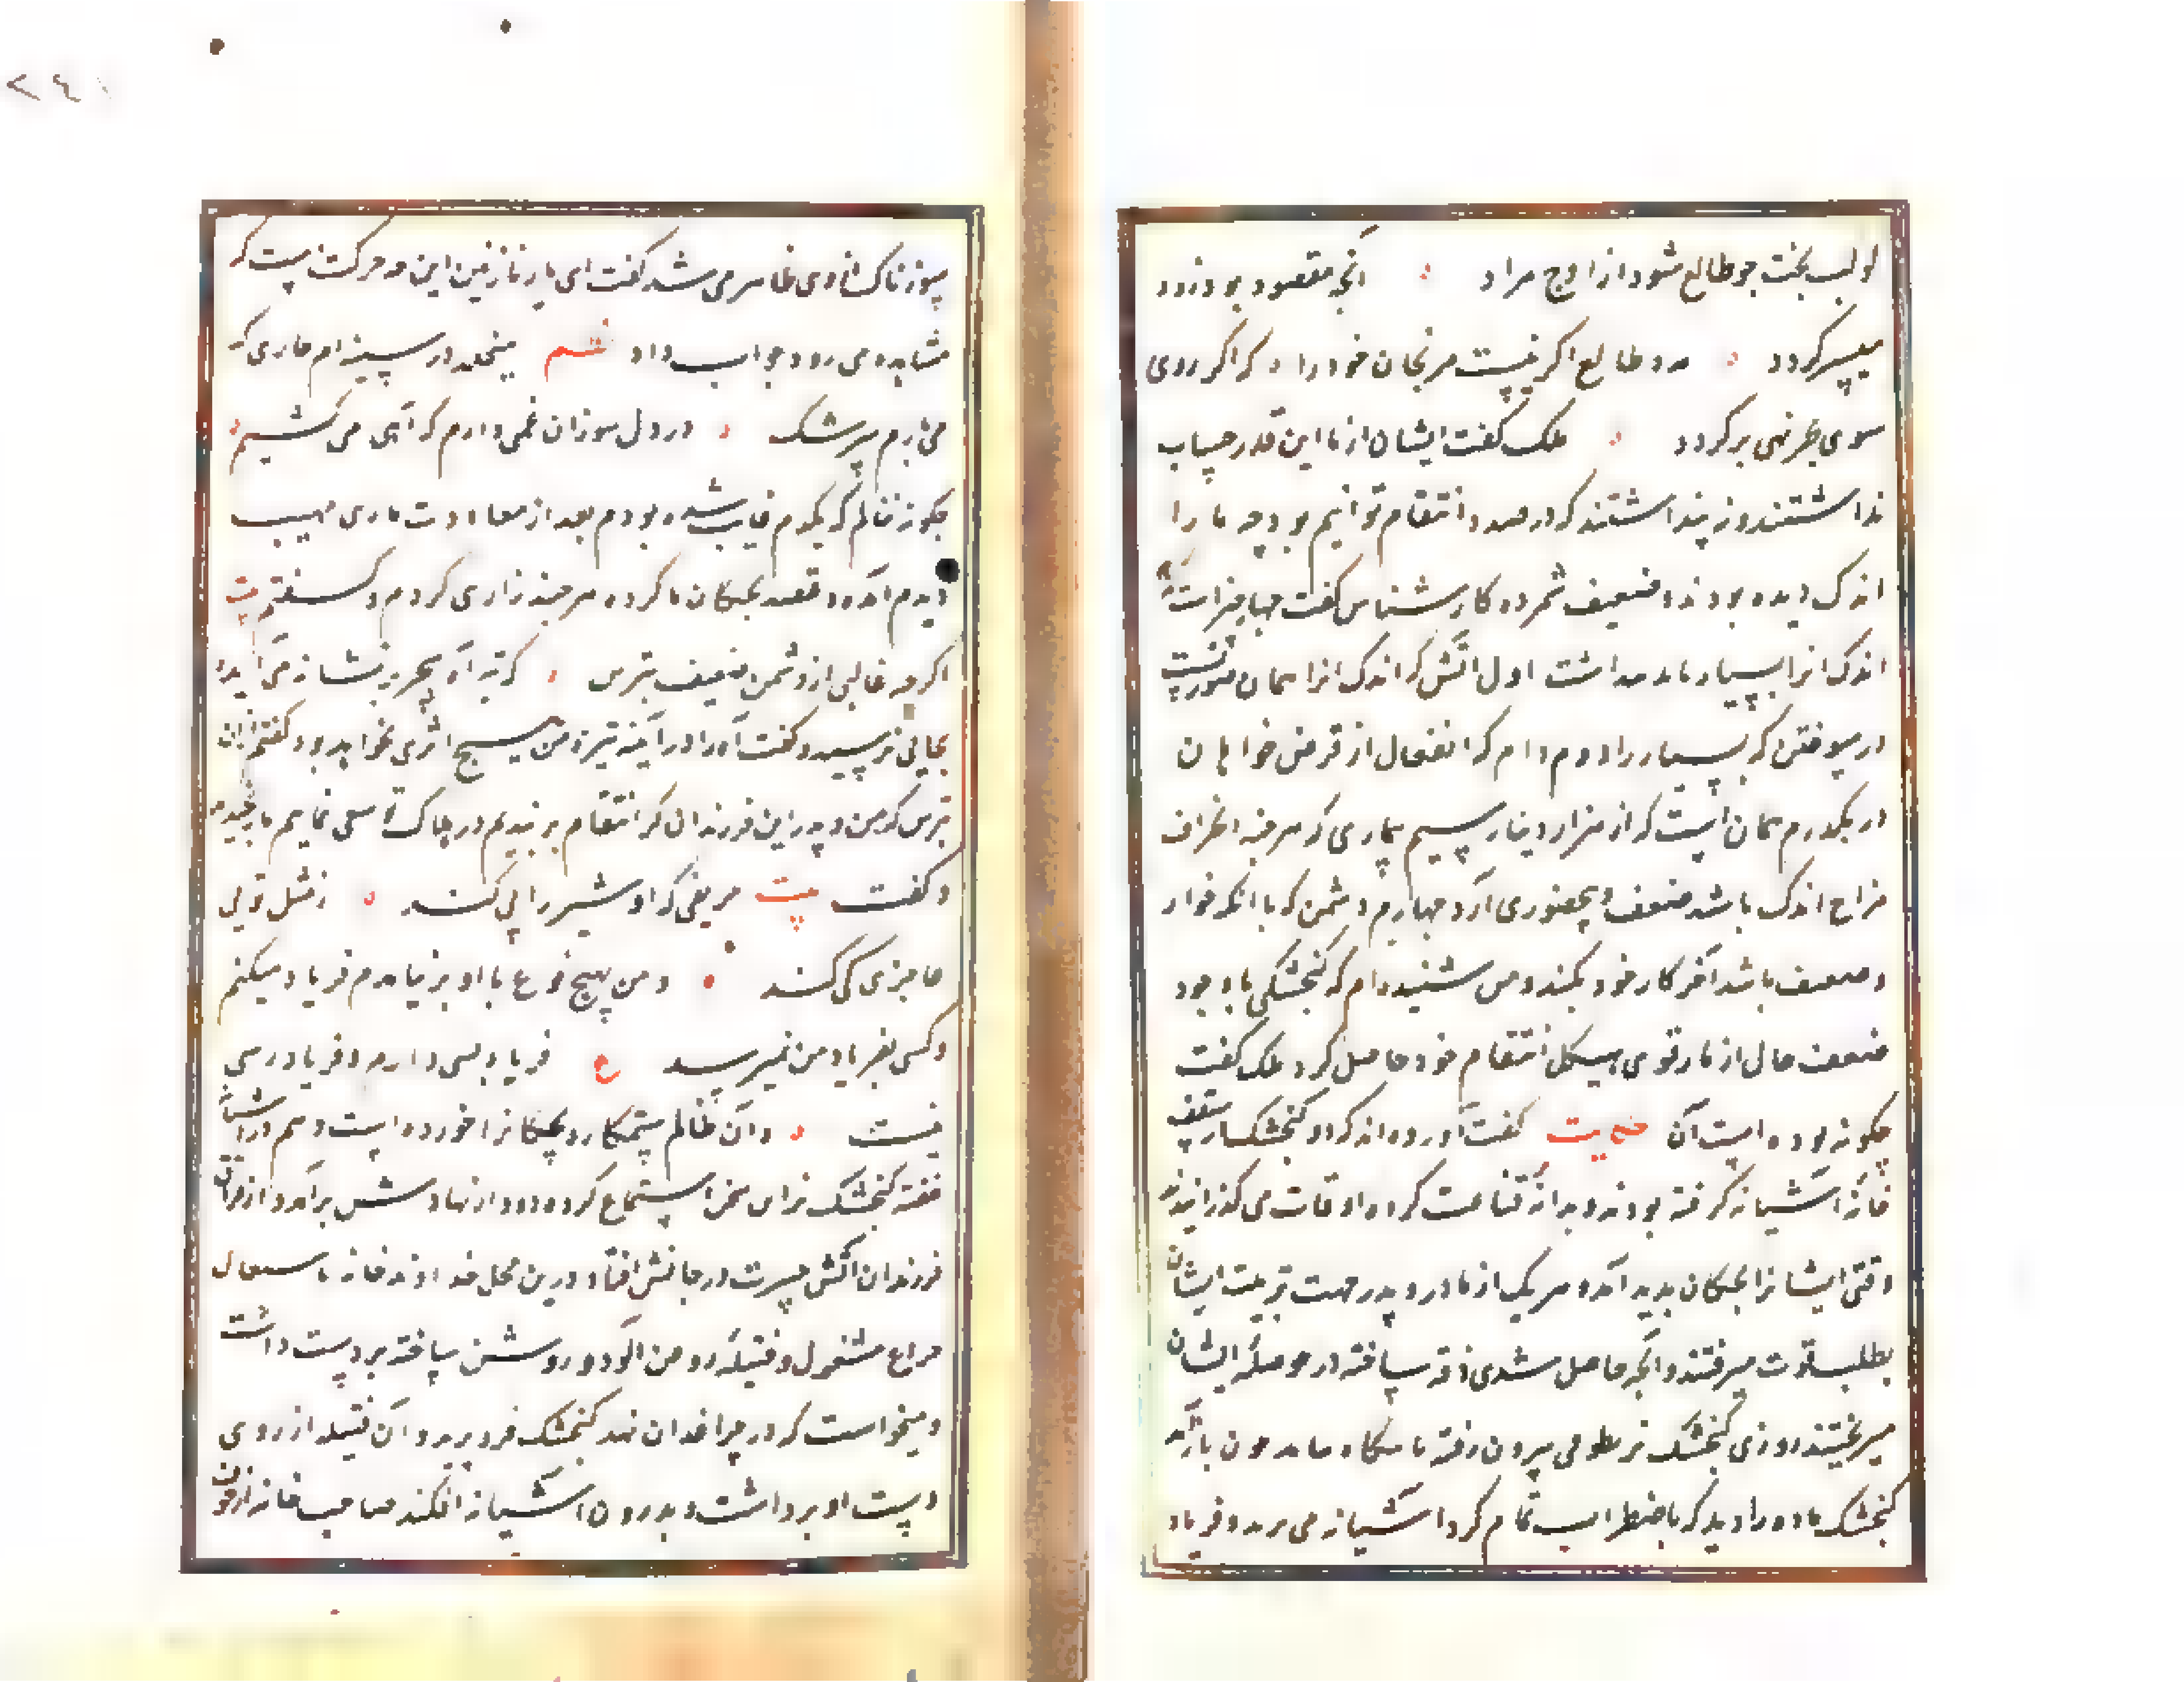 کوکب بخت چو طالع شود از اوج مراد ۰ آنچه مقصود بود زود
میسر گردد ۰ مدد طالع اگر نیست مرنجان خود را ۰ که اگر روی
سوی بحر نهی بر گردد ۰ ملک گفت ایشان از ما این قدر حساب
نداشتند و نه پنداشتند که در صدد انتقام توانیم بود چه ما را
اندک دیده بودند و ضعیف شمرده کارشناس گفت چهار چیز است که
اندک آنرا بسیار باید داشت اول آتش که اندک آنرا همان صورتست
در سوختن که بسیار را دوم وام که انفعال از قرض خواهان
در یکدرم همان است که از هزار دینار سیم بیماری که هر چند انحراف
مزاج اندک باشد ضعف و بیحضوری آرد چهارم دشمن که با آنکه خوار
و ضعیف باشد آخر کار خود بکند و من شنیده ام که گنجشکی با وجود
ضعف حال از مار قوی هیکل انتقام خود حاصل کرد ملک گفت
چگونه بوده است آن حکایت گفت آورده اند که دو گنجشک در سقف
خانه آشیانه گرفته بودند و بدانه قناعت کرده اوقات می گذرانیدند
وقتی ایشانرا بچگان پدید آمده هر یک از مادر و پدر جهت تربیت ایشان
بطلب قوت میرفتند و آنچه حاصل شدی زقه ساخته در حوصله ایشان
میریختند روزی گنجشک نر بطرفی بیرون رفته نا گاه چون باز آمد
گنجشک ماده را دید که باضطراب تمام گرد آشیانه می پرید و فریاد
سوزناک از وی ظاهر می شد گفت ای یار نازنین این چه حرکت است که
مشاهده می رود جواب داد نظم میخلد در سینه ام خاری که
می بارم سرشک ۰ در دل سوزان غمی دارم که آهی می کشیم ۰
چگونه ننالم که یکدم غایب شده بودم بعد از معاودت ماری مهیب
دیدم آمده و قصد بچگان ما کرده هر چند زاری کردم و گفتم بیت
اگر چه غالبی از دشمن ضعیف بترس ۰ که تیر آه سحر بر نشانه می آید ۰
بجایی نرسید و گفت آه را در آینه تیره من هیچ اثری نخواهد بود گفتم از آن
بترس که من و پدر این فرزندان کمر انتقام بر بندیم و در هلاک تو سعی نماییم مار بخندید
و گفت بیت حریفی که او شیر را پی کند ۰ ز مثل تویی
عاجزی کی کند ۰ و من بهیچ نوع با او بر نیامدم فریاد میکنم
و کسی بفریاد من نمیرسد ع فریاد بسی دارم و فریاد رسی
نیست ۰ و آن ظالم ستمکار بچگانرا خورده است و هم در آشیانه
خفته گنجشک نر این سخن استماع کرده دود از نهادش بر آمد و از فراق
فرزندان آتش حسرت در جانش افتاد در این محل خداوند خانه باشتعال
چراغ مشغول و فتیله روغن آلود و روشن ساخته بر دست داشت
و میخواست که در چراغدان نهد گنجشک فرو پرید و آن فتیله از روی
دست او برداشت و بدرون آشیانه افکند صاحب خانه از خوف